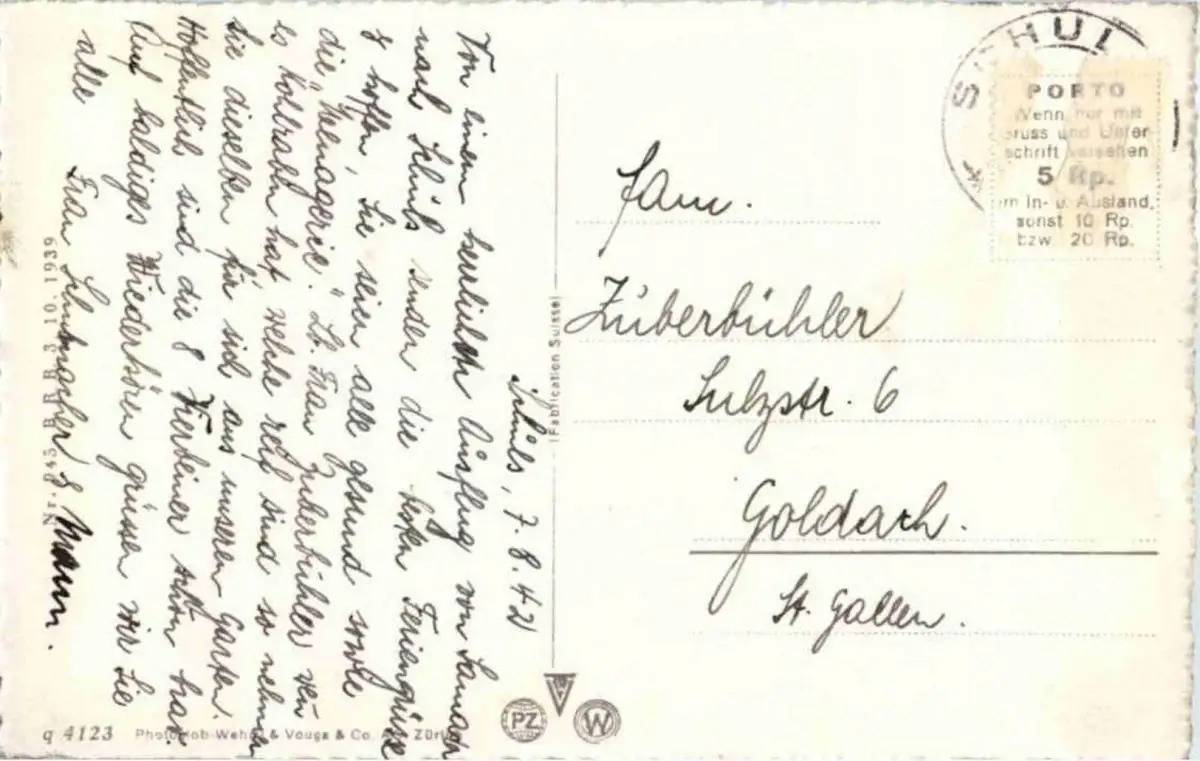 Schuls, 7.8.42
Von einem herrlichen Ausflug von Samaden
nach Schuls senden die besten Feriengrüsse
& hoffen, Sie seien alle gesund sowie
die "Menagerie". Lb. Frau Zuberbühler wen
es Kohlraben hat welche reif sind so nehmen
Sie dieselben für sich aus unserem Garten.
Hoffentlich sind die 8 Vierbeiner schön brav.
Auf baldiges Wiederhören grüssen wir Sie
alle Frau Schuhmacher & Mann.
Nr. 45 B.R.B. 3. 10. 1939
q 4123 Photoglob-Wehrli & Vouga & Co. A.G. Zürich
(Fabrication Suisse)
PZ W
SCHUL
PORTO
Wenn nur mit
Gruss und Unter-
schrift versehen
5 Rp.
im In- u. Ausland,
sonst 10 Rp.
bzw. 20 Rp.
Fam.
Züberbühler
Sulzstr. 6
Goldach.
St. Gallen.